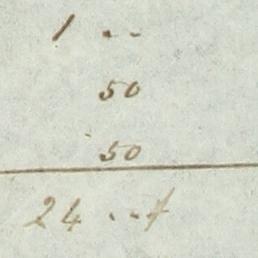 1 ..
50
50
24 ..